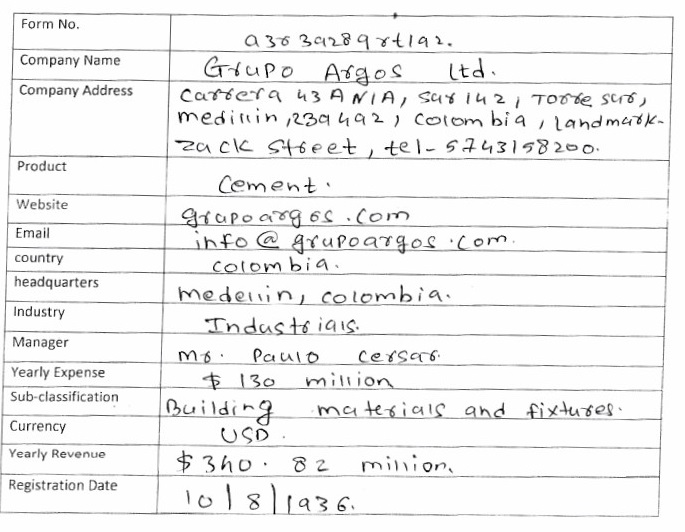 Form No.
Company Name Grupo Argos Ltd.
Company Address Carrera 43 A N1A, Sur 142, Torre sur,
medillin, 239492, Colombia, landmark-
zack street, tel- 5743158200.
Product Cement.
Website grupoargos.com
Email info@grupoargos.com.
country colombia.
headquarters Medellin, colombia.
Industry Industrials.
Manager Mr. Paulo Cersar.
Yearly Expense $ 130 million
Sub-classification Building materials and fixtures.
Currency USD.
Yearly Revenue $340.82 million.
Registration Date 10/8/1936.